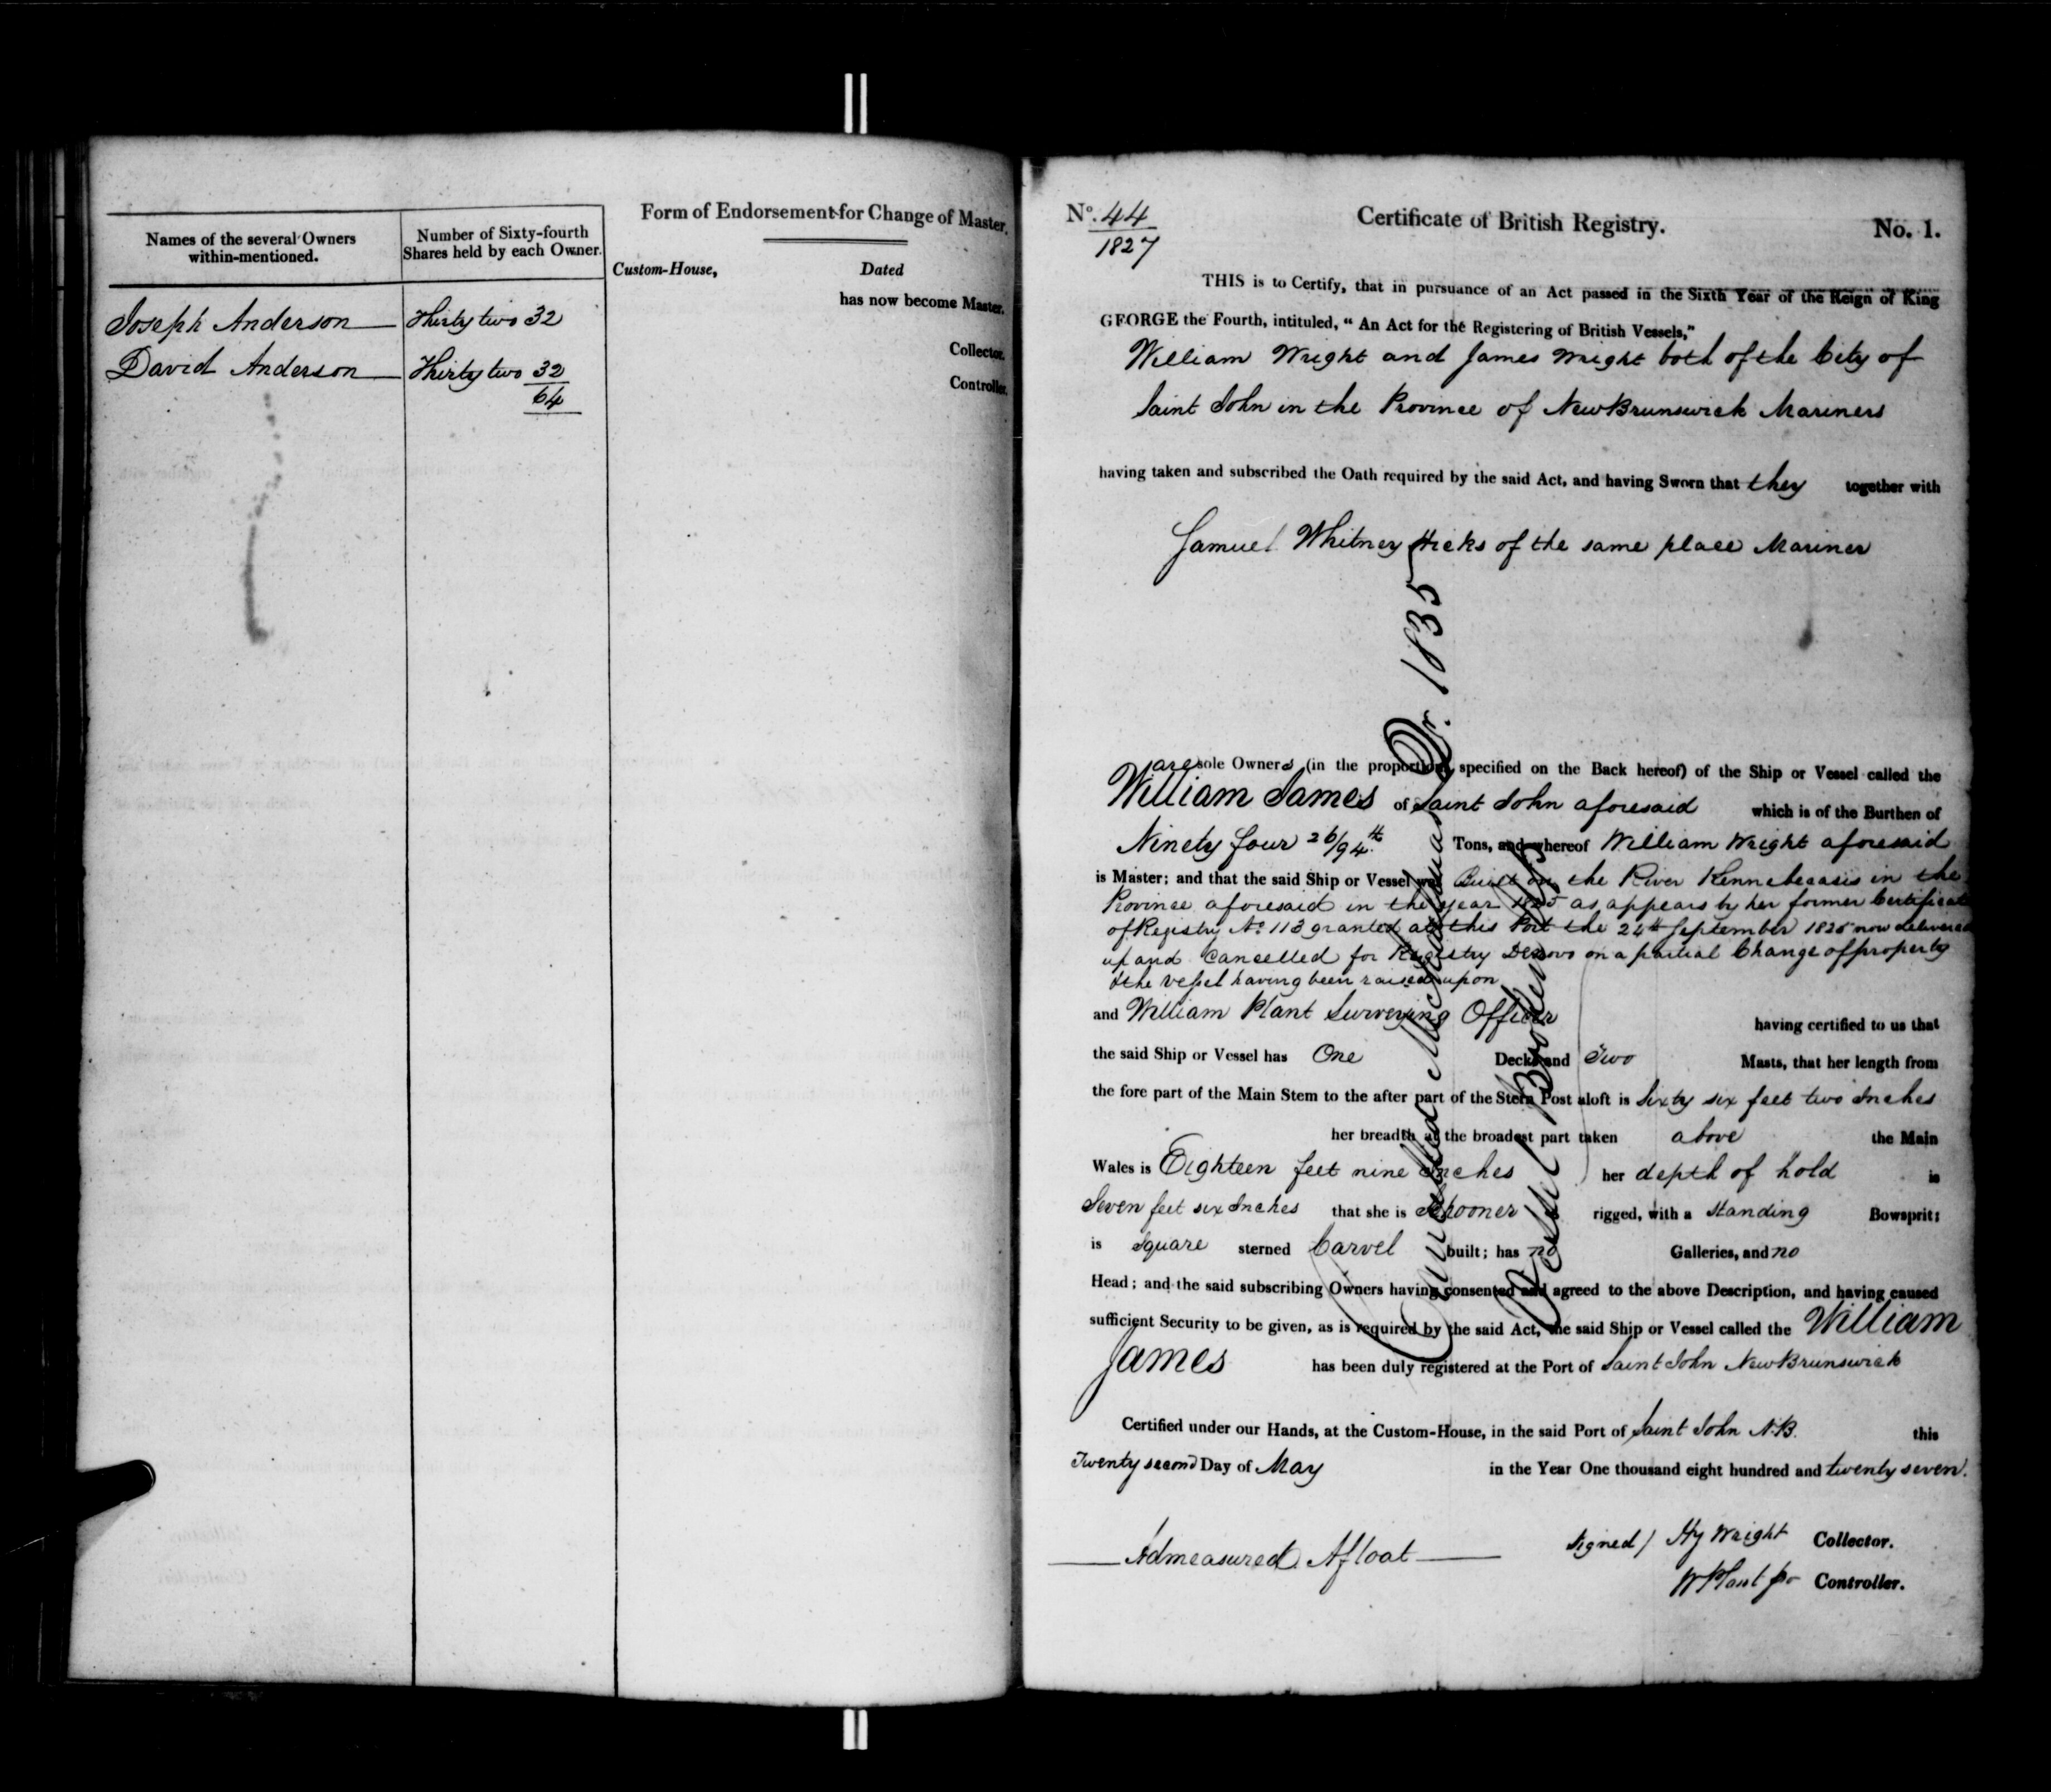 Names of the several Owners
within-mentioned.
Number of Sixty-fourth
Shares held by each Owner.
Joseph Anderson Thirty two 32
David Anderson Thirty two 32
64
Form of Endorsement for Change of Master.
Custom-House, Dated
has now become Master.
Collector.
Controller.
No. 44
1827
Certificate of British Registry.
No. 1.
THIS is to Certify, that in pursuance of an Act passed in the Sixth Year of the Reign of King
GEORGE the Fourth, intituled, “ An Act for the Registering of British Vessels,”
William Wright and James Wright both of the City of
Saint John in the Province of New Brunswick Mariners
having taken and subscribed the Oath required by the said Act, and having Sworn that they together with
Samuel Whitney Hicks of the same place Mariner
are sole Owners (in the proportions specified on the Back hereof) of the Ship or Vessel called the
William James of Saint John aforesaid which is of the Burthen of
Ninety four 26/94th Tons, and whereof William Wright aforesaid
is Master; and that the said Ship or Vessel was Built on the River Kennebecasis in the
Province aforesaid in the year 1825 as appears by her former Certificate
of Registry No 113 granted at this Port the 24th September 1825 now delivered
up and Cancelled for Registry Denovo on a partial Change of property
& the Vessel having been raised upon
and William Plant Surveying Officer having certified to us that
the said Ship or Vessel has One Deck and Two Masts, that her length from
the fore part of the Main Stem to the after part of the Stern Post aloft is Sixty six feet two Inches
her breadth at the broadest part taken above the Main
Wales is Eighteen feet nine Inches her depth of hold is
Seven feet six Inches that she is Schooner rigged, with a Standing Bowsprit;
is Square sterned Carvel built; has no Galleries, and no
Head; and the said subscribing Owners having consented and agreed to the above Description, and having caused
sufficient Security to be given, as is required by the said Act, the said Ship or Vessel called the William
James has been duly registered at the Port of Saint John New Brunswick
Certified under our Hands, at the Custom-House, in the said Port of Saint John N.B. this
Twenty second Day of May in the Year One thousand eight hundred and twenty seven.
Admeasured Afloat
Signed / Hy Wright Collector.
W Plant Controller.
Cancelled
1835
Vessel Broken Up